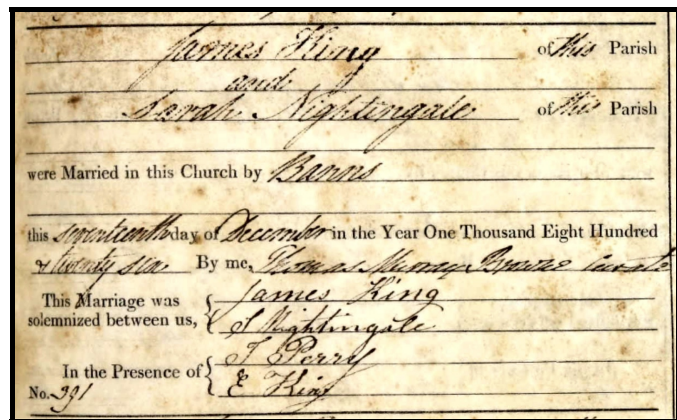 James King of this Parish
and
Sarah Nightingale of this Parish
were Married in this Church by Banns
this seventeenth day of December in the Year One Thousand Eight Hundred
& twenty six By me, Thomas Murray Browne Curate
This Marriage was solemnized between us, { James King
S Nightingale
In the Presence of { J Perry
E King
No. 391